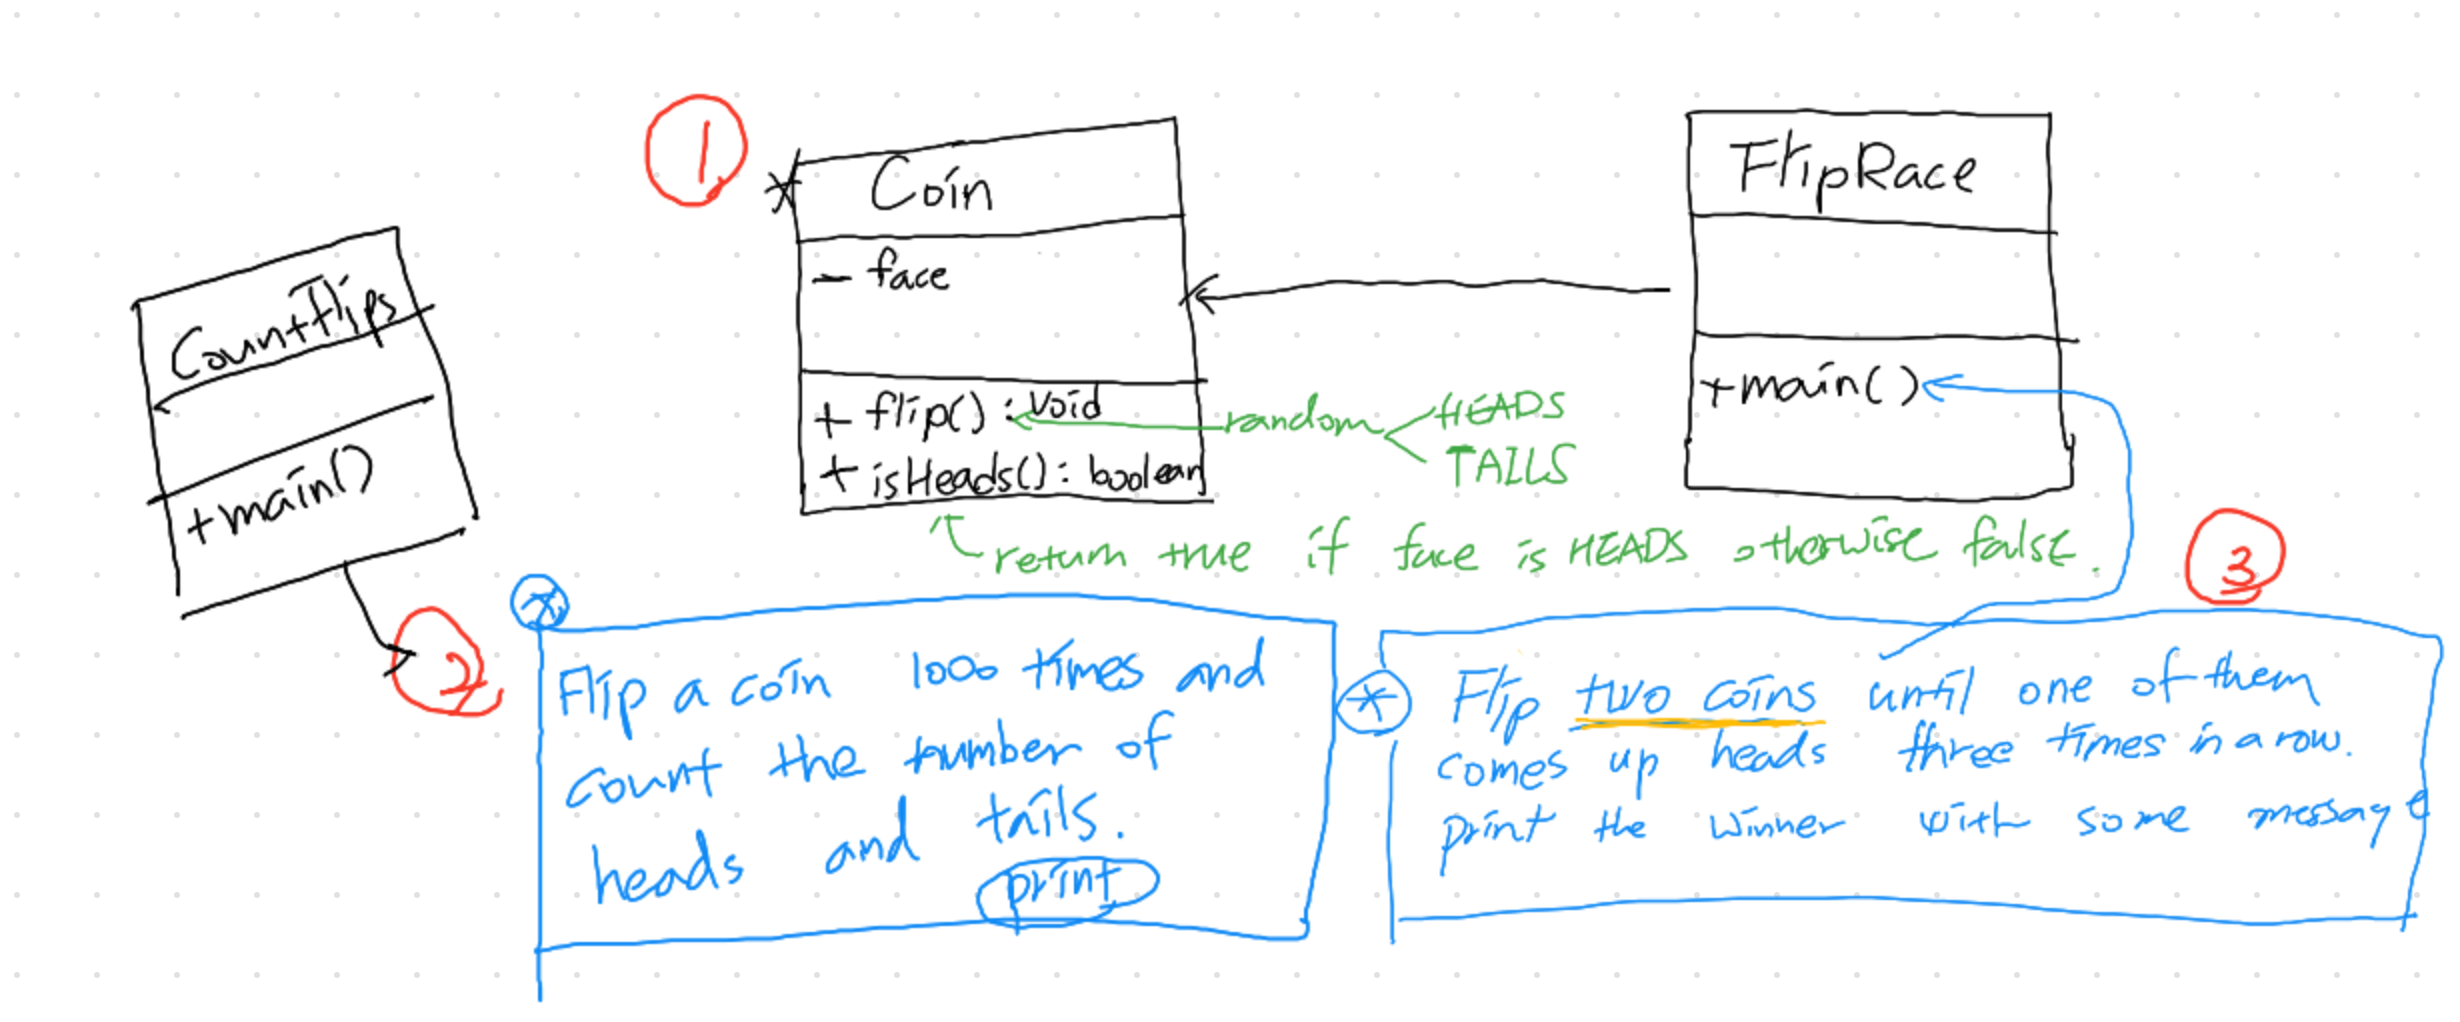 1
Coin
- face
+ flip() : void
+ isHeads() : boolean
random
HEADS
TAILS
return true if face is HEADS otherwise false.
FlipRace
+main()
CountFlips
+main()
2
Flip a coin 1000 times and
count the number of
heads and tails.
print
3
Flip two coins until one of them
comes up heads three times in a row.
print the winner with some message